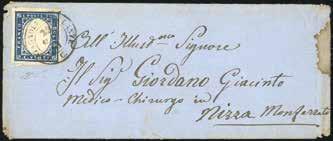 All'Illust.mo Signore
Il Sig.r Giordano Giacinto
Medico-Chirurgo in
Nizza Monferrato